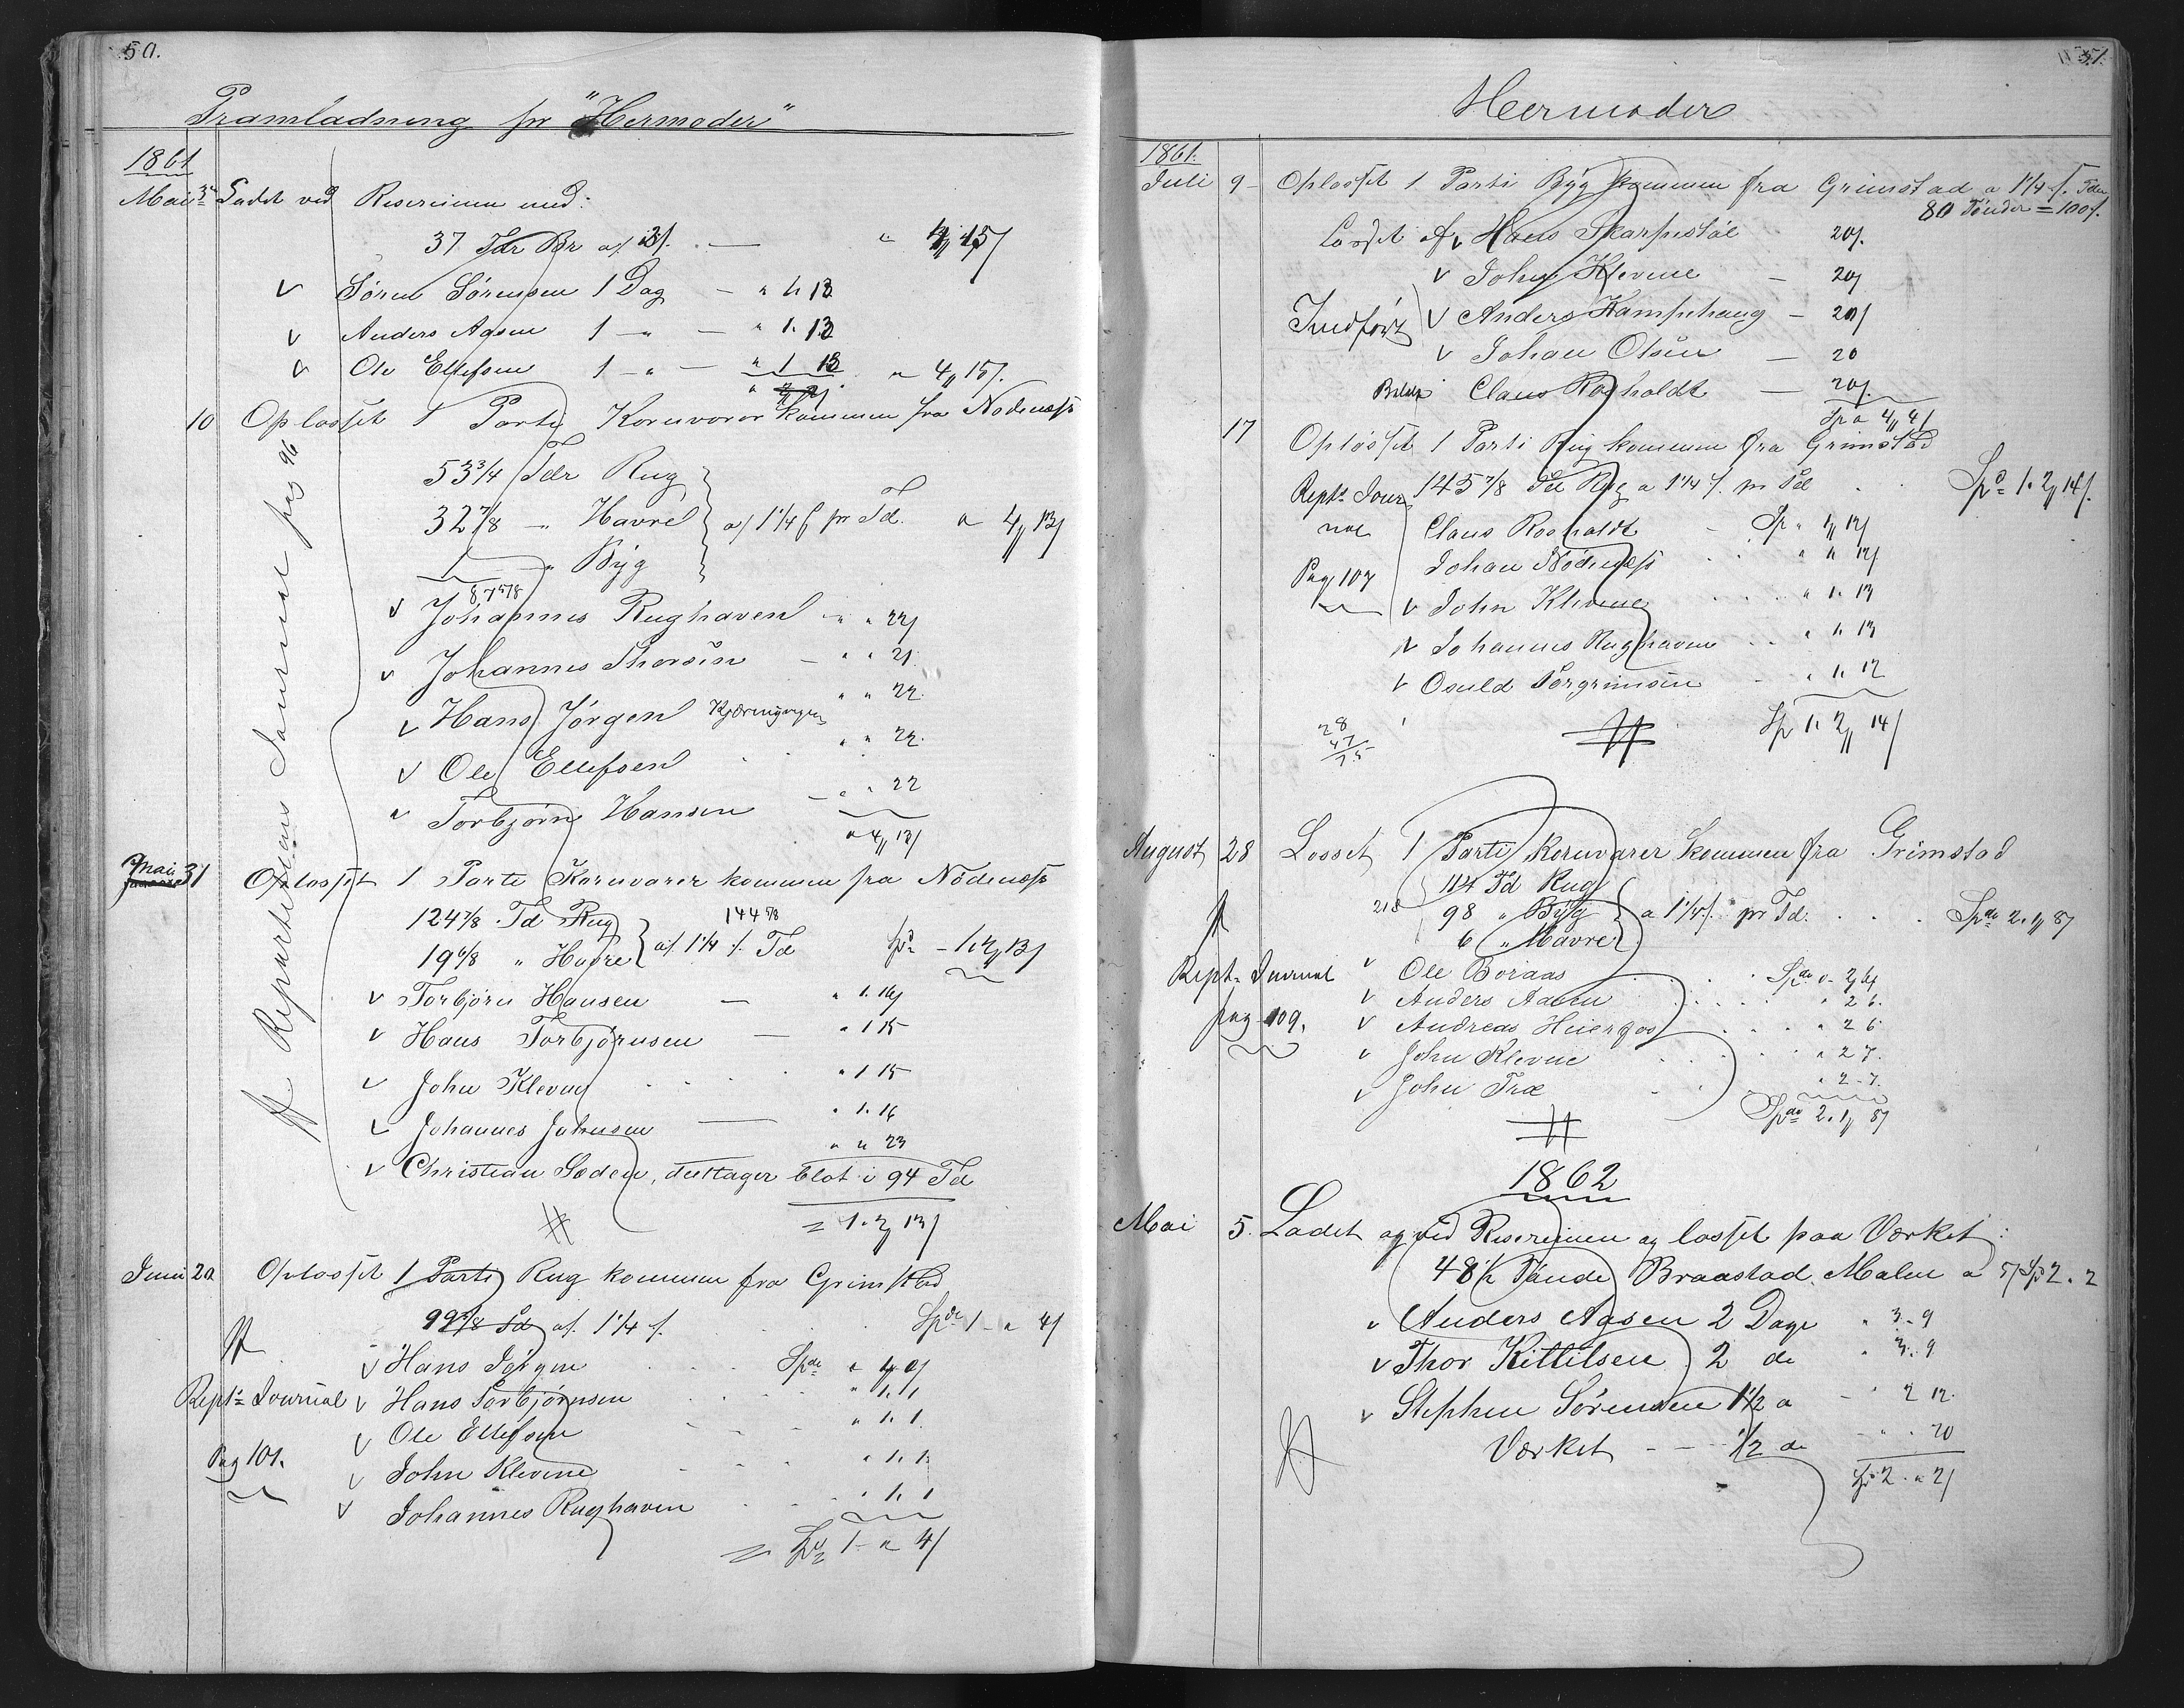 50.
Pramladning pr "Hermoder"
1861
Mai 3 Ladet ved Resereinen med:
37 Tdr Br a/ 3/. — " 4,, 15/
v Søren Sørensen 1 Dag — " 1. 13
v Anders Aasen 1 — " — " 1. 13
v Ole Ellefsen 1 — " — " 1 13 " 4,, 15/.
10 Oplosset 1 Parti Kornvarer kommen fra Nødenæss
53 3/4 Tdr Rug
32 7/8 — " Havre a/ 1 1/4 ſ pr Td. " 4,, 13/
1 — " Byg
87 5/8
v Johannes Rughaven — " " 22/
v Johannes Thorsen — " " 21.
v Hans Jørgen " " 22.
v Ole Ellefsen " " 22.
v Torbjørn Hansen — " " 22
" 4,, 13/
Repartitions Journal pag 96
Mai 31 Oplosset 1 Parti Kornvarer kommen fra Nødenæss
124 7/8 Td Rug 144 5/8
19 6/8 " Havre a/ 1 1/4 /. Td Spd — 1. 2,, 13/
v Torbjørn Hansen — " 1. 16/
v Hans Torbjørnsen — " 1 15
v John Klevne . . . " 1 15
v Johannes Johnsen — " 1. 16
" " 23
v Christian Soden, deeltager blot i 94 Td
= 1. 2,, 13/
Juni 20 Oplosset 1 Parti Rug kommen fra Grimstad
99 3/8 Td a/. 1 1/4 /. Spd 1 — " 4/
v Hans Jørgen . . . Spd " 1,, 0/
Rept Journal v Hans Torbjørnsen . . . " 1. 1
v Ole Ellefsen " 1. 1
Pag 101. v John Klevene " 1. 1
v Johannes Rughaven " 1. 1
= Spd 1 — " 4/
51.
Hermoder
1861.
Juli 9 — Oplosset 1 Parti Byg kommen fra Grimstad a 1 1/4 /. Tden
80 Tønder = 100/.
Losset af v Hans Skarpestøl 20/.
v John Klevene — 20/
Indført v Anders Kamphaug — 20/
v Johan Olsen — 20
Claus Rosholdt — 20/.
Sp " 4,, 4/
17 Oplosset 1 Parti Rug kommen fra Grimstad
Rept Jour 145 7/8 Td Rug a 1 1/4 /. pr Td . . Spd 1. 2,, 14/.
nal Claus Rosholdt — Sp " 1,, 12/
Johan Nødenæss . . " " 12/
Pag 107 v John Klevene . . . " 1. 13
v Johannes Rughaven . . " 1. 13
v Osuld Torgrimsen — " 1. 12
Sp 1. 2,, 14/
28
47
75
August 28 Losset 1 Parti Kornvarer kommen fra Grimstad
114 Td Rug
218 98 " Byg a 1 1/4 /. pr Td. . . . Spd 2. 1,, 8/
6 " Havre
Rept Journal v Ole Boraas . . . Spd 0 — 2,, 6/
v Anders Aasen . . . . " 2 6.
pag 109. v Andreas Heieraas . . . " 2 6
v John Klevne . . . " 2 7.
v John Træ " 2 — 7.
Spd 2. 1,, 8/
1862
Mai 5. Ladet og ved Resereinen og losset paa Værket:
48 1/2 Tønde Braastad Malm a 5/ Sp 2. 2
v Anders Aasen 2 Dage " 3. 9
v Thor Kittilsen 2 do " 3. 9
v Stephen Sørensen 1 1/2 a — " 2 12.
Værket — — 1/2 do — " . 20
Sp 2 . " 2/